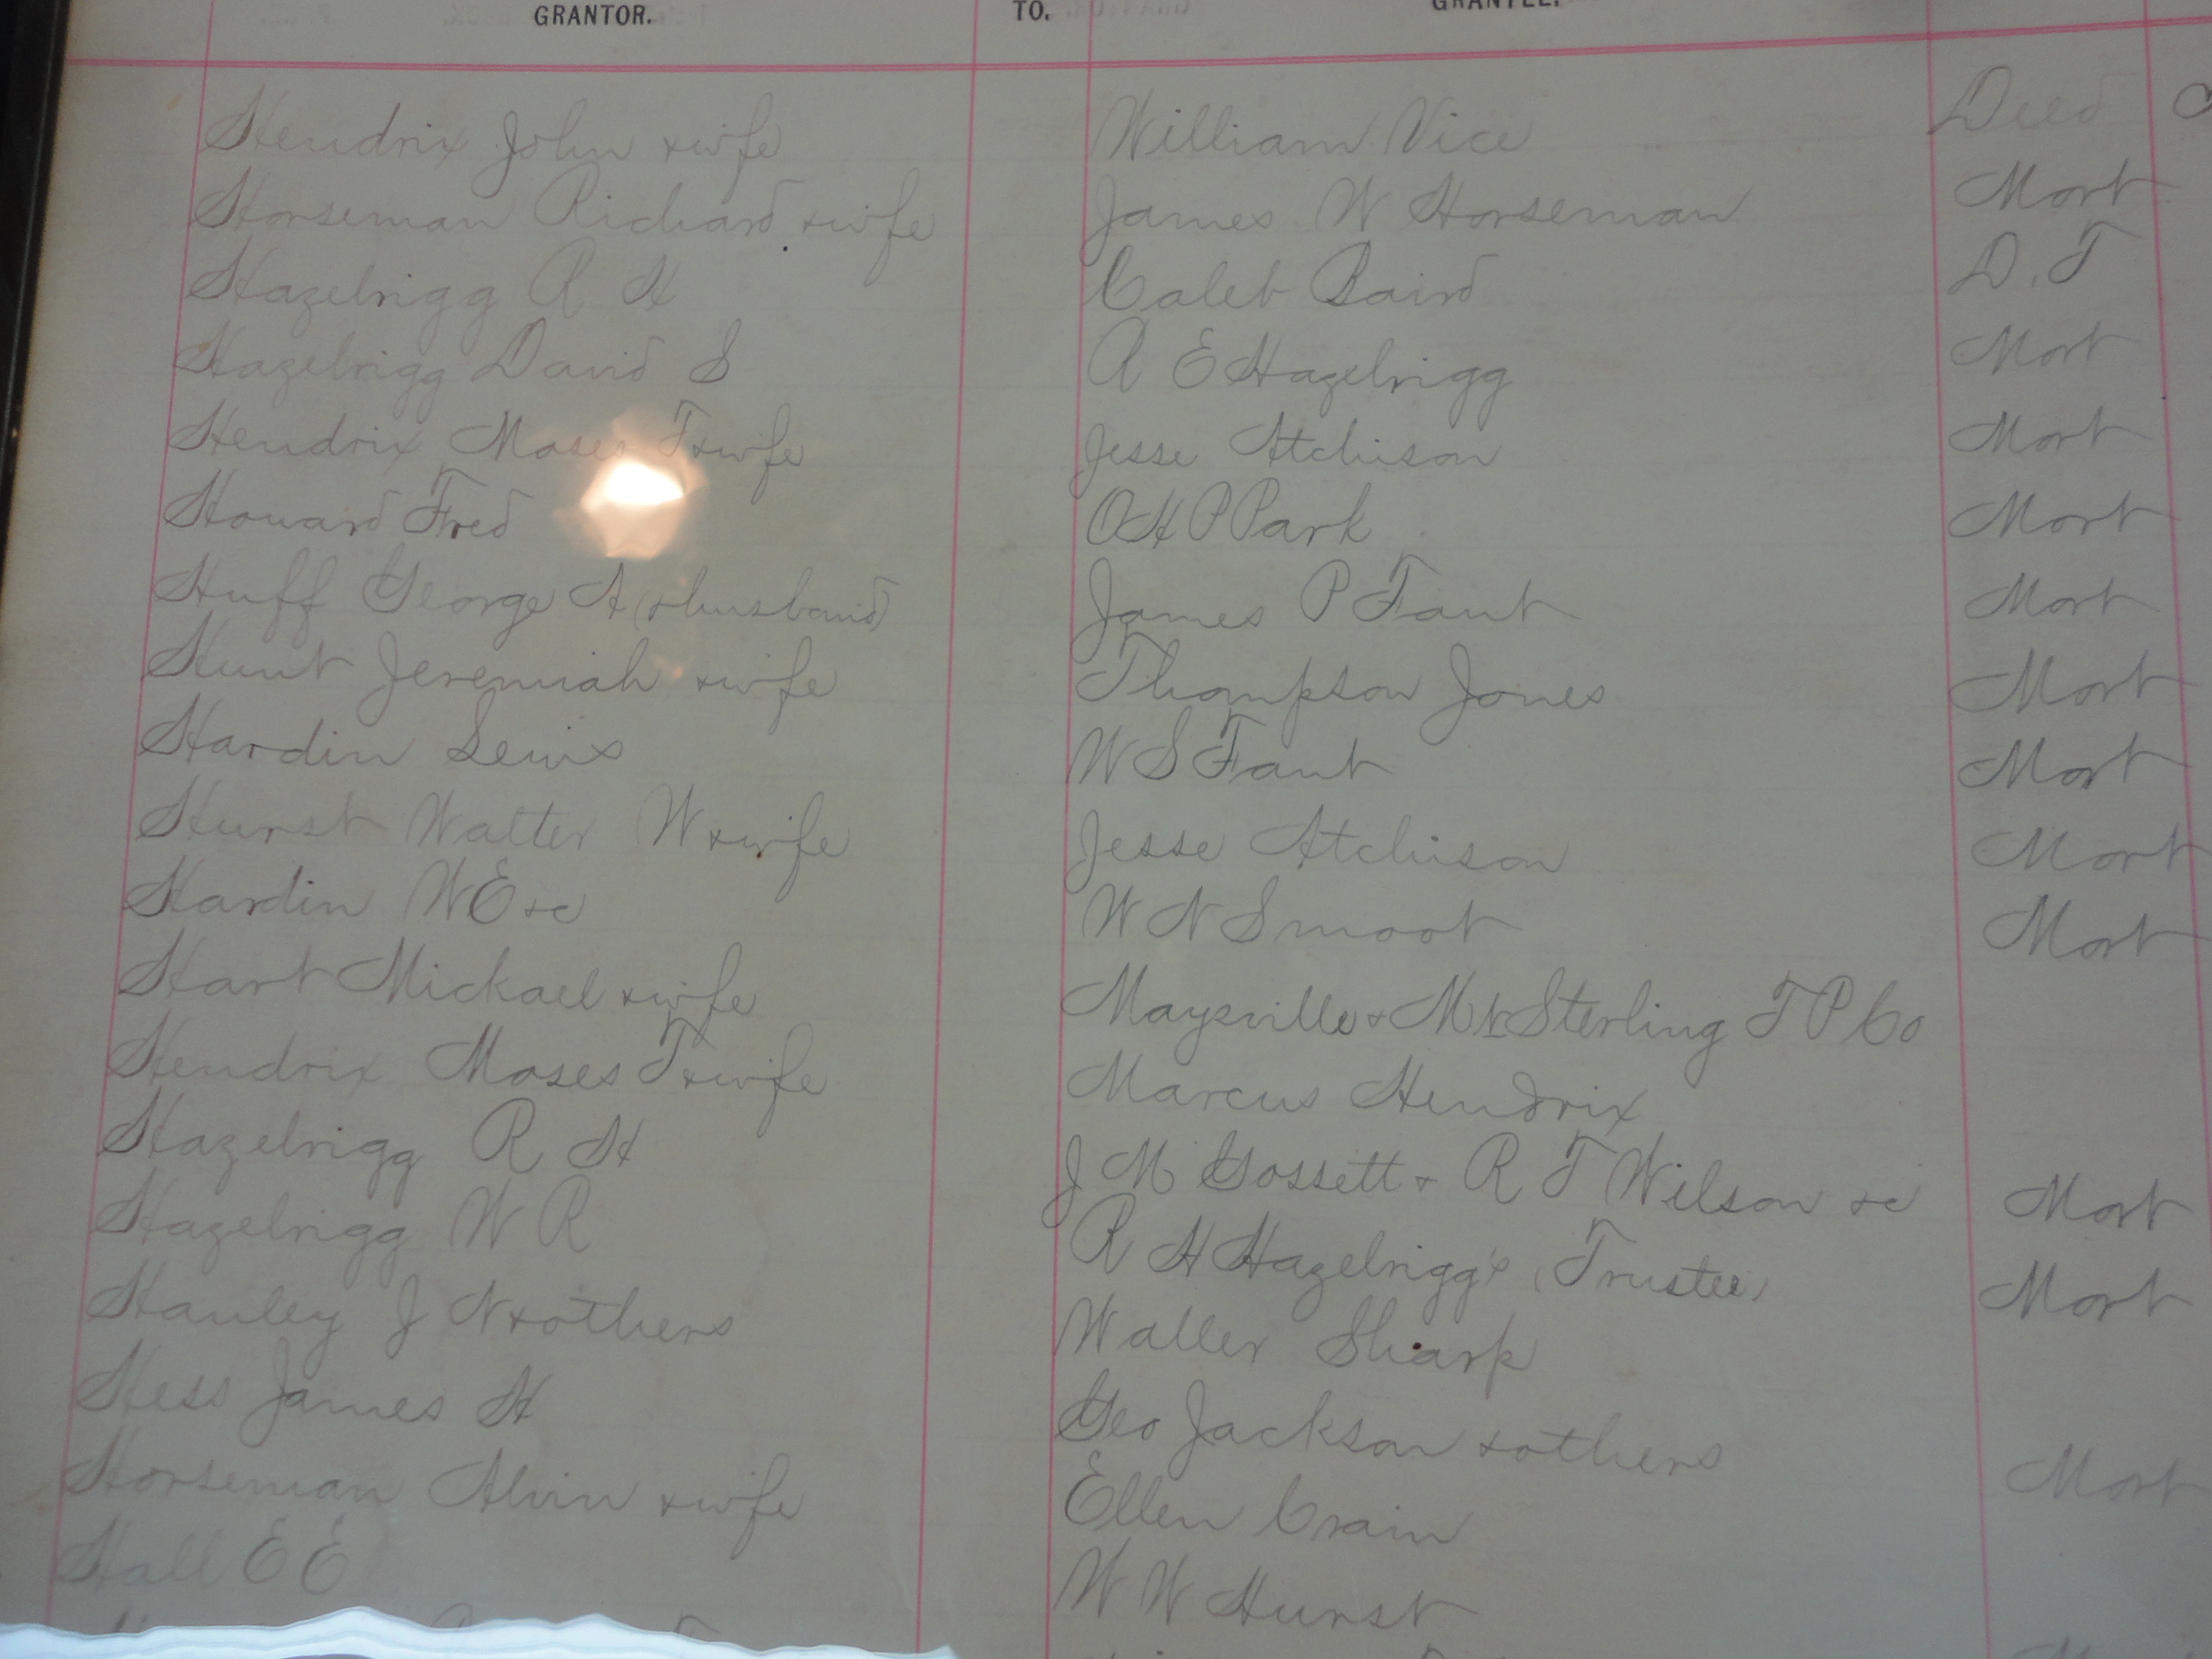 GRANTOR. TO. GRANTEE.
Hendrix John & wife William Vice Deed
Horseman Richard & wife James W Horseman Mort
Hazelrigg R H Caleb Baird D. T
Hazelrigg David S A E Hazelrigg Mort
Hendrix Moses T & wife Jesse Atchison Mort
Howard Fred O H P Park Mort
Huff George A (& husband) James P Fant Mort
Hunt Jeremiah & wife Thompson Jones Mort
Hardin Lewis W S Fant Mort
Hurst Walter W & wife Jesse Atchison Mort
Hardin W E &c W N Smoot Mort
Hart Mickael & wife Maysville & Mt Sterling T P Co
Hendrix Moses T & wife Marcus Hendrix
Hazelrigg R H J M Gossett & R T Wilson &c Mort
Hazelrigg W R R H Hazelrigg's (Trustee) Mort
Hanley J N & others Waller Sharp
Hess James H Geo Jackson & others Mort
Horseman Alvin & wife Ellen Crain
Hall E E W W Hurst